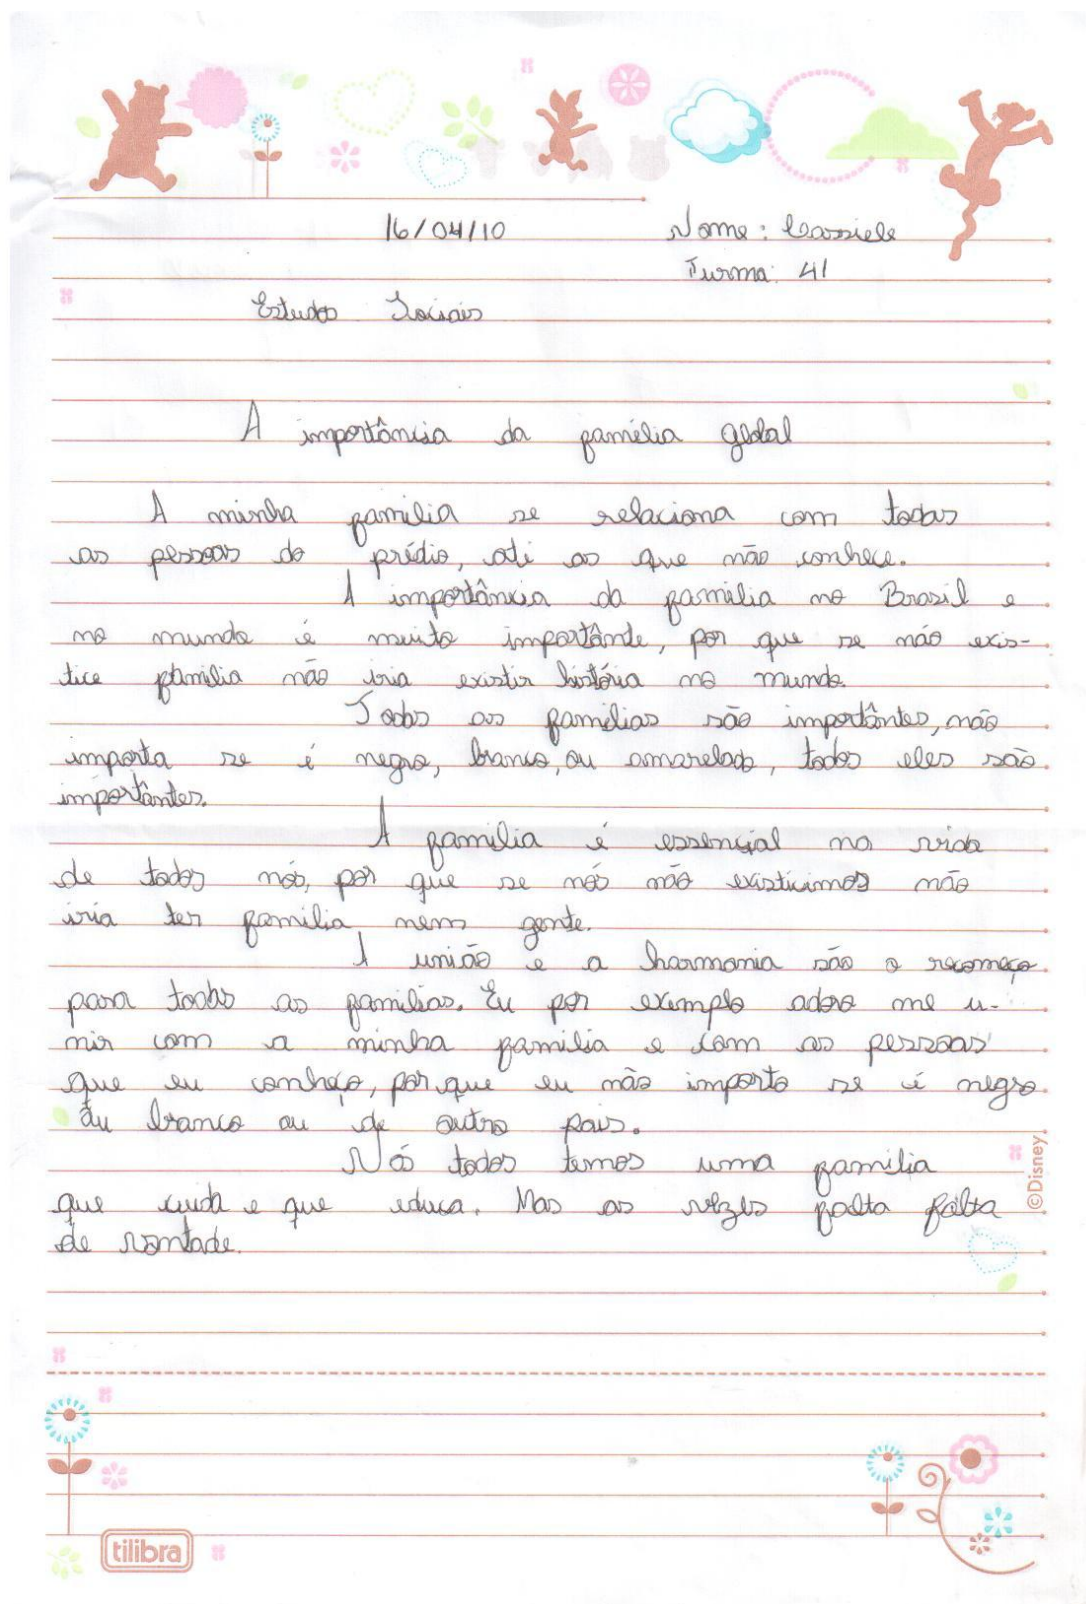 16/04/10 Nome: Cassiele
Turma: 41
Estudos Sociais
A importância da família global
A minha familia se relaciona com todas
as pessoas do prédio, até as que não conhece.
A importância da familia no Brasil e
no mundo é muito importânte, por que se não exis-
tice familia não iria existir história no mundo.
Todas as familias são importântes, não
importa se é negro, branco, ou amarelado, todos eles são
importântes.
A familia é essencial na vida
de todos nós, por que se nós não existicimos não
iria ter familia nem gente.
A união e a harmonia são o recomeço
para todas as familias. Eu por exemplo adoro me u-
nir com a minha familia e com as pessoas
que eu conheço, por que eu não importo se é negro
ou branco ou de outro pais.
Nós todos temos uma familia
que cuida e que educa. Mas as vezes falta falta
de vontade.
©Disney
tilibra